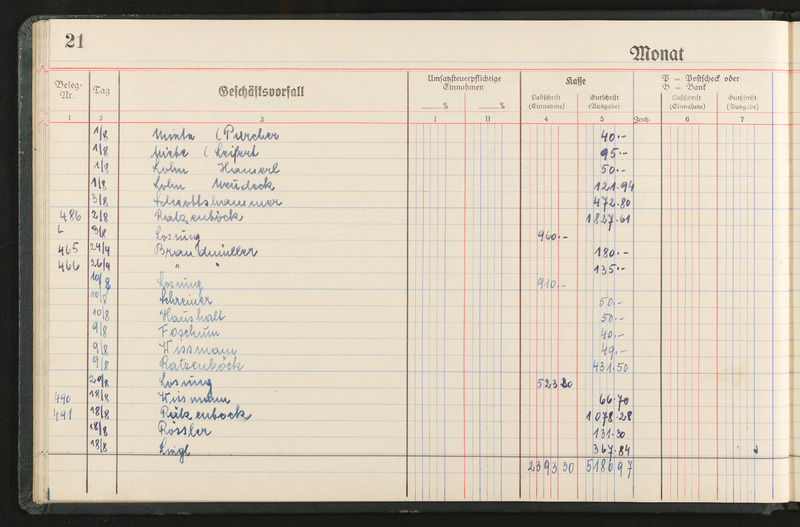 21
Monat
Beleg-Nr. Tag Geschäftsvorfall Umsatzsteuerpflichtige Einnahmen Kasse P = Postscheck oder B = Bank
% % Lastschrift (Einnahme) Gutschrift (Ausgabe) Lastschrift (Einnahme) Gutschrift (Ausgabe)
1 2 3 I II 4 5 Zeich. 6 7
1/8 Miete (Purcher 40.-
1/8 Miete (Leifert 95.-
1/8 Lohn Hamerl 50.-
1/8 Lohn Neudeck 121.94
3/8 Schrottshammer 472.80
486 2/8 Ratzenböck 1827.61
9/8 Losung 960.-
465 24/4 Brandmüller 180.-
466 26/4 " " 135.-
10/8 Losung 910.-
10/8 Schreiner 50.-
10/8 Haushalt 50.-
9/8 Faschum 40.-
9/8 Wissmann 49.-
9/8 Ratzenböck 431.50
20/8 Losung 523 30
490 18/8 Wissmann 66.70
491 18/8 Rätzenbock 1078.28
18/8 Rössler 131.30
18/8 Lingl 367.84
2393 30 5186 97